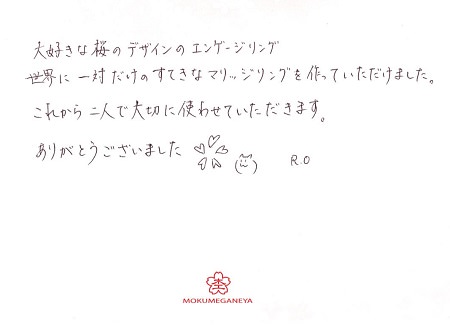 大好きな桜のデザインのエンゲージリング
世界に一対だけのすてきなマリッジリングを作っていただけました。
これから二人で大切に使わせていただきます。
ありがとうございました
R.O
MOKUMEGANEYA